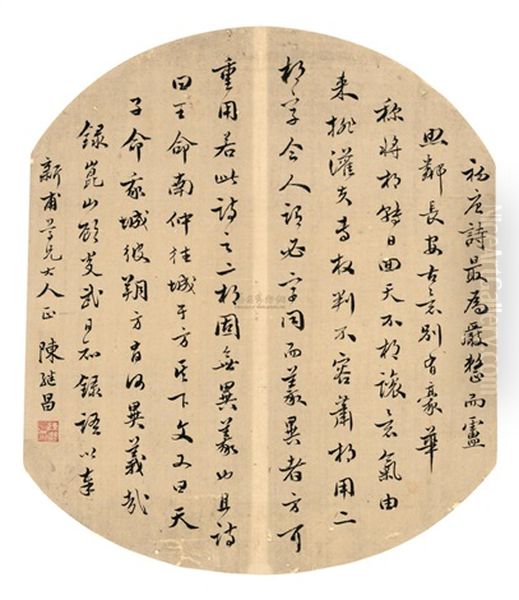 初唐詩最為嚴整而盧
照鄰長安古意別有豪華
称將相轉日回天不相讓意氣由
来排灌夫專权判不容蕭相用二
相字今人謂必字同而義異者方可
重用若此詩之二相固無異義也且詩
曰王命南仲往城于方其下文又曰天
子命我城彼朔方有何異義哉
録崑山顧炎武日知録語以奉
新甫尊兄大人正 陳繼昌